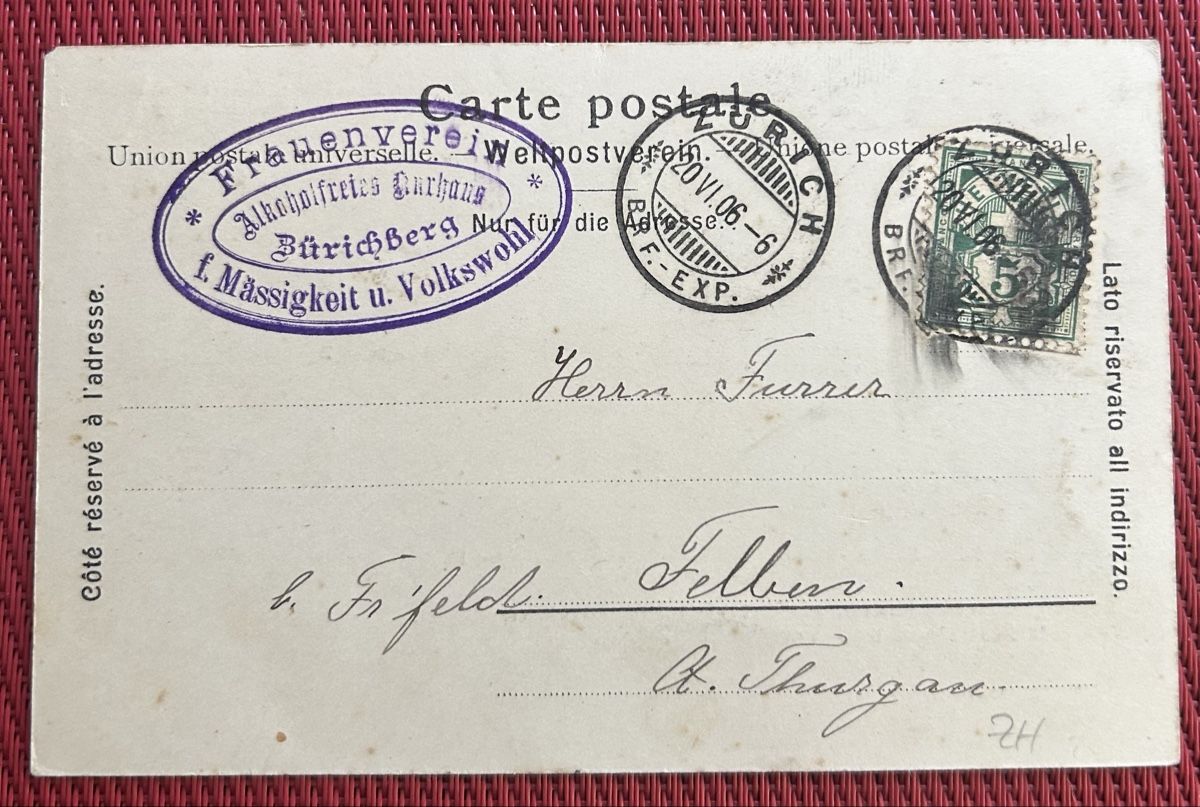 Carte postale.
Union postale universelle. — Weltpostverein. — Unione postale universale.
Nur für die Adresse.
Frauenverein
Alkoholfreies Kurhaus
Zürichberg
f. Mässigkeit u. Volkswohl
ZÜRICH
20 VI. 06. - 6
BRF. - EXP.
ZÜRICH
20 VI. 06
BRF.
5
Côté réservé à l'adresse.
Lato riservato all indirizzo.
Herrn Furrer
Felben.
b. Fr'feld.
Ct. Thurgau.
ZH